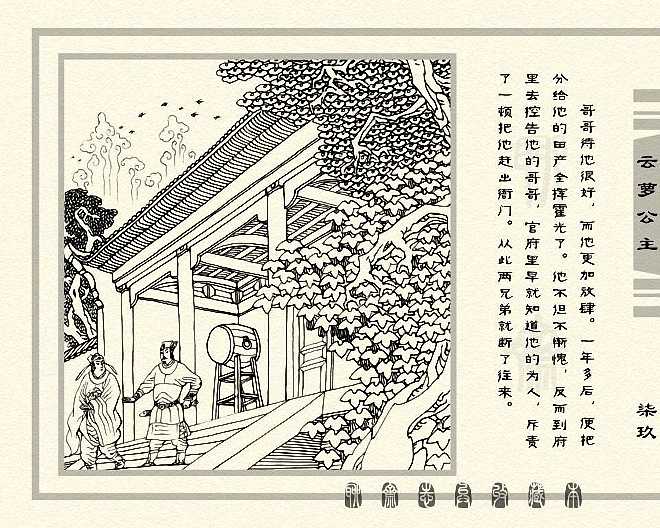 云萝公主
柒玖
哥哥待他很好，而他更加放肆。一年多后，便把
分给他的田产全挥霍光了。他不但不惭愧，反而到府
里去控告他的哥哥，官府里早就知道他的为人，斥责
了一顿把他赶出衙门。从此两兄弟就断了往来。